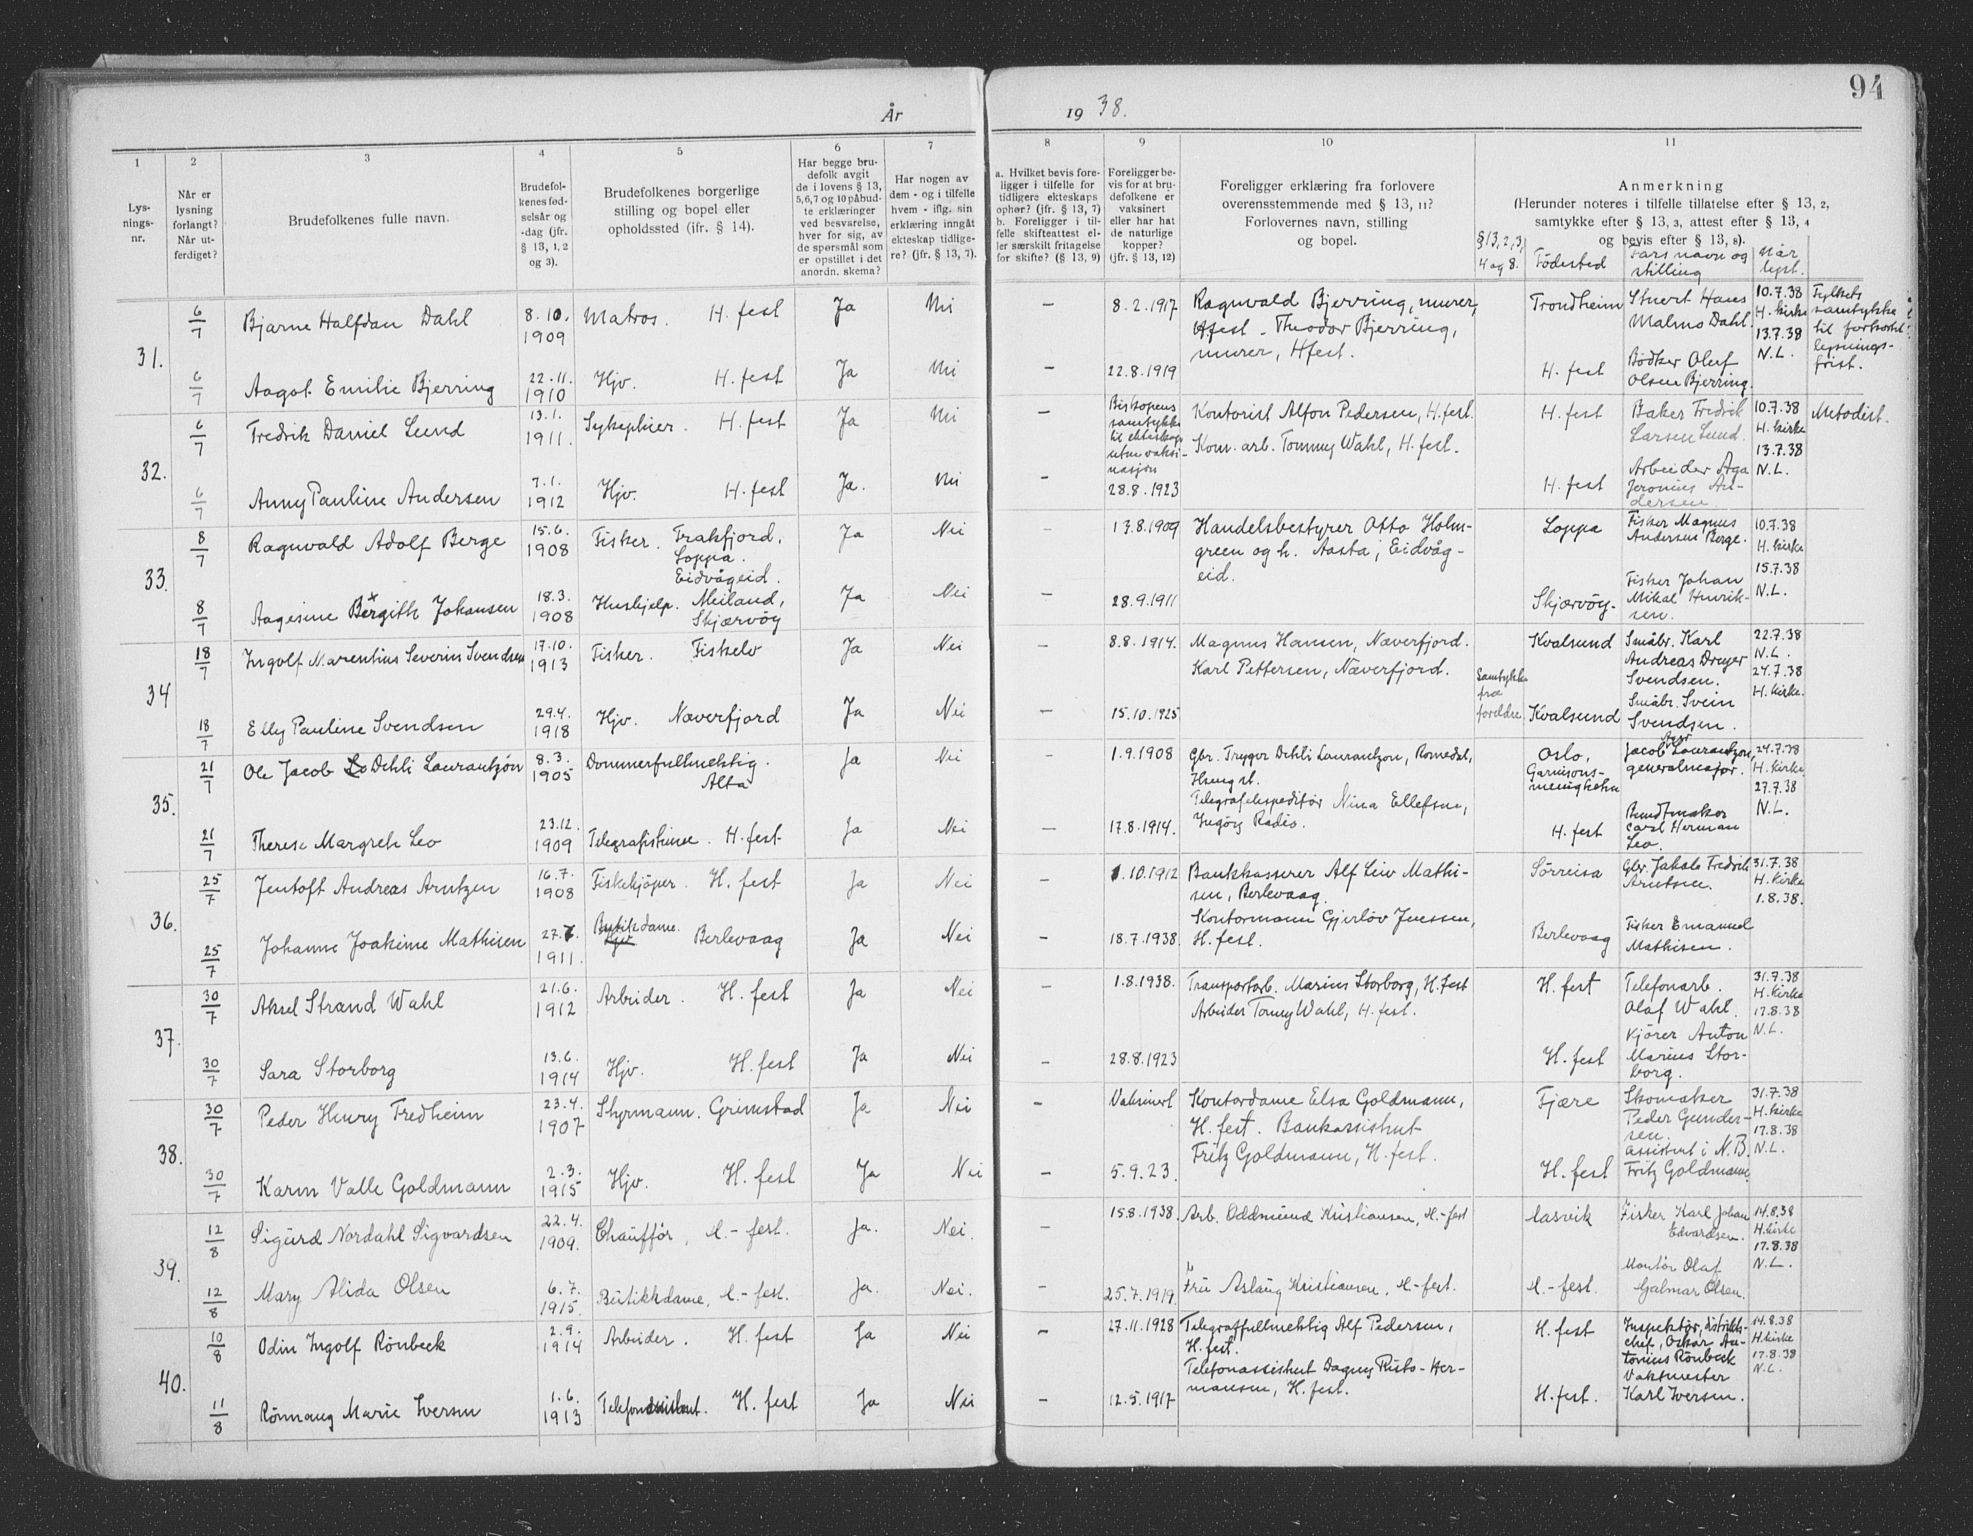 94
År 1938.
1 2 3 4 5 6 7 8 9 10 11
Lysnings-nr.
Når er lysning forlangt? Når utferdiget?
Brudefolkenes fulle navn.
Brudefolkenes fødselsår og -dag (jfr. § 13, 1, 2 og 3).
Brudefolkenes borgerlige stilling og bopel eller opholdssted (ifr. § 14).
Har begge brudefolk avgit de i lovens § 13, 5,6,7 og 10 påbudte erklæringer ved besvarelse, hver for sig, av de spørsmål som er opstillet i det anordn. skema?
Har nogen av dem - og i tilfelle hvem - iflg. sin erklæring inngått ekteskap tidligere? (jfr. § 13, 7).
a. Hvilket bevis foreligger i tilfelle for tidligere ekteskaps ophør? (jfr. § 13, 7) b. Foreligger i tilfelle skifteattest eller særskilt fritagelse for skifte? (§ 13, 9)
Foreligger bevis for at brudefolkene er vaksinert eller har hat de naturlige kopper? (jfr. § 13, 12)
Foreligger erklæring fra forlovere overensstemmende med § 13, 11? Forlovernes navn, stilling og bopel.
Anmerkning
(Herunder noteres i tilfelle tillatelse efter § 13, 2, samtykke efter § 13, 3, attest efter § 13, 4 og bevis efter § 13, 8).
§ 13, 2, 3, 4 og 8. Fødested Fars navn og stilling Når lyst.
31. 6/7 Bjarne Halfdan Dahl 8.10. 1909 Matros. H. fest Ja Nei — 8.2.1917 Ragnvald Bjerring, murer, Hfest - Theodor Bjerring, murer, Hfest. Trondheim Stuert Hans Malmo Dahl. 10.7.38 H. kirke 13.7.38 N.L. Fylkets samtykke til forkortet lysnings-frist.
6/7 Aagot Emilie Bjerring 22.11. 1910 Hjv. H. fest Ja Nei — 22.8.1919 H. fest Bødker Oluf Olsen Bjerring.
32. 6/7 Fredrik Daniel Lund 13.1. 1911. Sykepleier. H. fest Ja Nei — Biskopens samtykke til ekteskap uten vaksi-nasjon Kontorist Alfon Pedersen, H. fest. Kom. arb. Tommy Wahl, H. fest. H. fest Baker Fredrik Larsen Lund. 10.7.38 H. kirke 13.7.38 N.L. Metodist.
6/7 Anny Pauline Andersen 7.1. 1912 Hjv. H. fest Ja. Nei — 28.8.1923 H. fest Arbeider Aga Jeronius An-dersen.
33. 8/7 Ragnvald Adolf Berge 15.6. 1908 Fisker. Frakfjord, Loppa. Ja Nei — 13.8.1909 Handelsbestyrer Otto Holm-green og h. Aasta, Eidvåg-eid. Loppa Fisker Magnus Andersen Berge. 10.7.38 H. kirke 15.7.38 N.L.
8/7 Aagesine Bergith Johansen 18.3. 1908 Hushjelp. Eidvågeid. Meiland, Skjærvøy Ja Nei — 28.9.1911 Skjærvøy. Fisker Johan Mikal Henrik-sen.
34 18/7 Ingolf Marentius Severin Svendsen 17.10. 1913 Fisker. Fiskelv Ja Nei — 8.8.1914. Magnus Hansen, Næverfjord. Karl Pettersen, Næverfjord. Kvalsund Småbr. Karl Andreas Dreyer Svendsen. 22.7.38 N.L. 24.7.38 H. kirke.
18/7 Elly Pauline Svendsen 29.4. 1918 Hjv. Næverfjord Ja Nei — 15.10.1925 Samtykke fra foreldre. Kvalsund Småbr. Svein Svendsen.
35. 21/7 Ole Jacob Dehli Laurantzøn 8.3. 1905 Dommerfullmektig. Alta Ja Nei 1.9.1908 Gbr. Trygve Dehli Laurantzon, Romedal, Hamar st. Telegrafekspeditør Nina Ellefsen, Ingøy Radio. Oslo, Garnisons-menigheten Jacob Laurantzon, generalmajor. 24.7.38 H. kirke 27.7.38 N.L.
21/7 Therese Margreth Leo 23.12. 1909 Telegrafistinne. H. fest Ja Nei — 17.8.1914. H. fest Buntmaker Carl Herman Leo.
36. 25/7 Jentoft Andreas Arntzen 16.7. 1908 Fiskekjøper. H. fest Ja Nei — 1.10.1912 Bankkasserer Alf Leiv Mathi-sen, Berlevaag. Kontormann Gjerløv Jnessen, H. fest. Sørreisa Gbr. Jakob Fredrik Arntsen. 31.7.38 H. kirke 1.8.38.
25/7 Johanne Joakime Mathisen 27.7. 1911. Butikdame. Berlevaag Ja Nei — 18.7.1938. Berlevaag Fisker Emanuel Mathisen.
37. 30/7 Aksel Strand Wahl 21.6. 1912 Arbeider. H. fest Ja Nei — 1.8.1938. Transportarb. Marius Storborg, H. fest Arbeider Tommy Wahl, H. fest. H. fest Telefonarb. Olaf Wahl. 31.7.38 H. kirke 17.8.38 N.L.
30/7 Sara Storborg 13.6. 1914 Hjv. H. fest Ja Nei — 28.8.1923 H. fest Kjører Anton Marius Stor-borg.
38. 30/7 Peder Henry Fredheim 23.4. 1907 Styrmann. Grimstad Ja Nei — Vaksinert Kontordame Elsa Goldmann, H. fest. Bankassistent Fritz Goldmann, H. fest. Fjære Skomaker Peder Gunder-sen. 31.7.38 H. kirke 17.8.38 N.L.
30/7 Karin Valle Goldmann 2.3. 1915 Hjv. H. fest Ja Nei — 5.9.23. H. fest assistent i N.B. Fritz Goldmann.
39. 12/8 Sigurd Nordahl Sigvardsen 22.4. 1909. Chauffør, H.-fest. Ja. Nei. — 15.8.1938. Arb. Oddmund Kristiansen, H.-fest Aasvik Fisker Karl Johan Edvardsen. 14.8.38 H. kirke 17.8.38 N.L.
12/8 Mary Alida Olsen 6.7. 1915. Butikkdame, H.-fest. Ja. Nei. — 25.7.1919. Fru Aslaug Kristiansen, H.-fest. H.-fest. Montør Olaf Galmar Olsen.
40. 10/8 Odin Ingolf Rønbeck 2.9. 1914 Arbeider. H. fest Ja Nei — 27.11.1928 Telegraffullmektig Alf Pedersen, H. fest. Telefonassistent Dagny Ruts-Her-mansen, H. fest. H. fest Inspektør, distrikts-chef, Oskar An-tonius Rønbeck 14.8.38 H. kirke 17.8.38 N.L.
11/8 Rønnaug Marie Iversen 1.6. 1913 Telefonassistent. H. fest Ja Nei — 12.5.1917 H. fest. Vaktmester Karl Iversen.